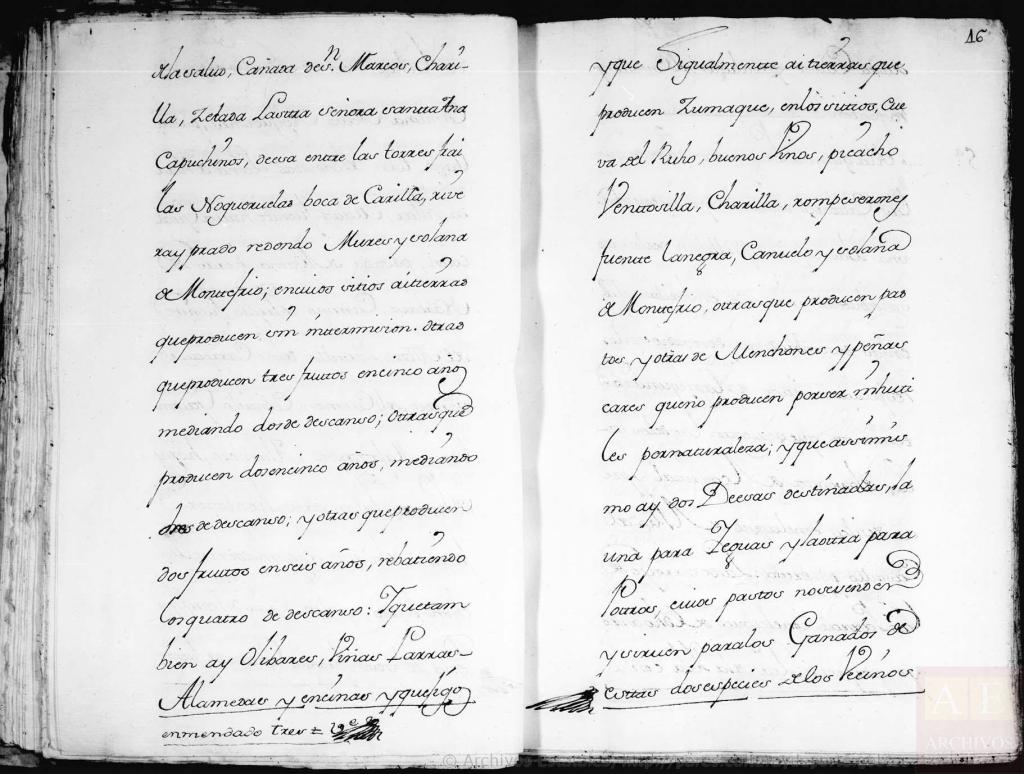 dela salud, Cañada de Sn. Marcos, Chari-
lla, Zetada Lastra señora santta Ana
Capuchinos, deesa entre las torres frai
las Nogueruelas boca de Carilla, rive
ra y prado redondo Mures y solana
de Montefrio; en cuios sitios ai tierras
que producen sin intermision. otras
que producen tres fruttos en cinco años
mediando dos de descanso; Otras que
producen dos en cinco años, mediando
tres de descanso; y otras que producen
dos fruttos en seis años, rebatiendo
los quatro de descanso: Y que tam
bien ay Olibares, Viñas Parras-
Alamedas y encinas y quejigos
enmendado tres =
16
y que Sigualmente ai tierras que
producen Zumaque, en los sitios, Cue
va del Ruho, buenos Vinos, picacho
Venttosilla, Charilla, rompeserones
fuente la negra, Canuelo y solana
de Montefrio, outras que producen pas
tos y otras de Menchones y peñas
cares que no producen por ser inhuti
les por naturaleza; y que assimis
mo ay dos Deesas destinadas, la
una para Yeguas y la otra para
Pottros, cuios pastos no se venden
y sirven para los Ganados de
estas dos especies de los Vecinos
A E
ARCHIVOS